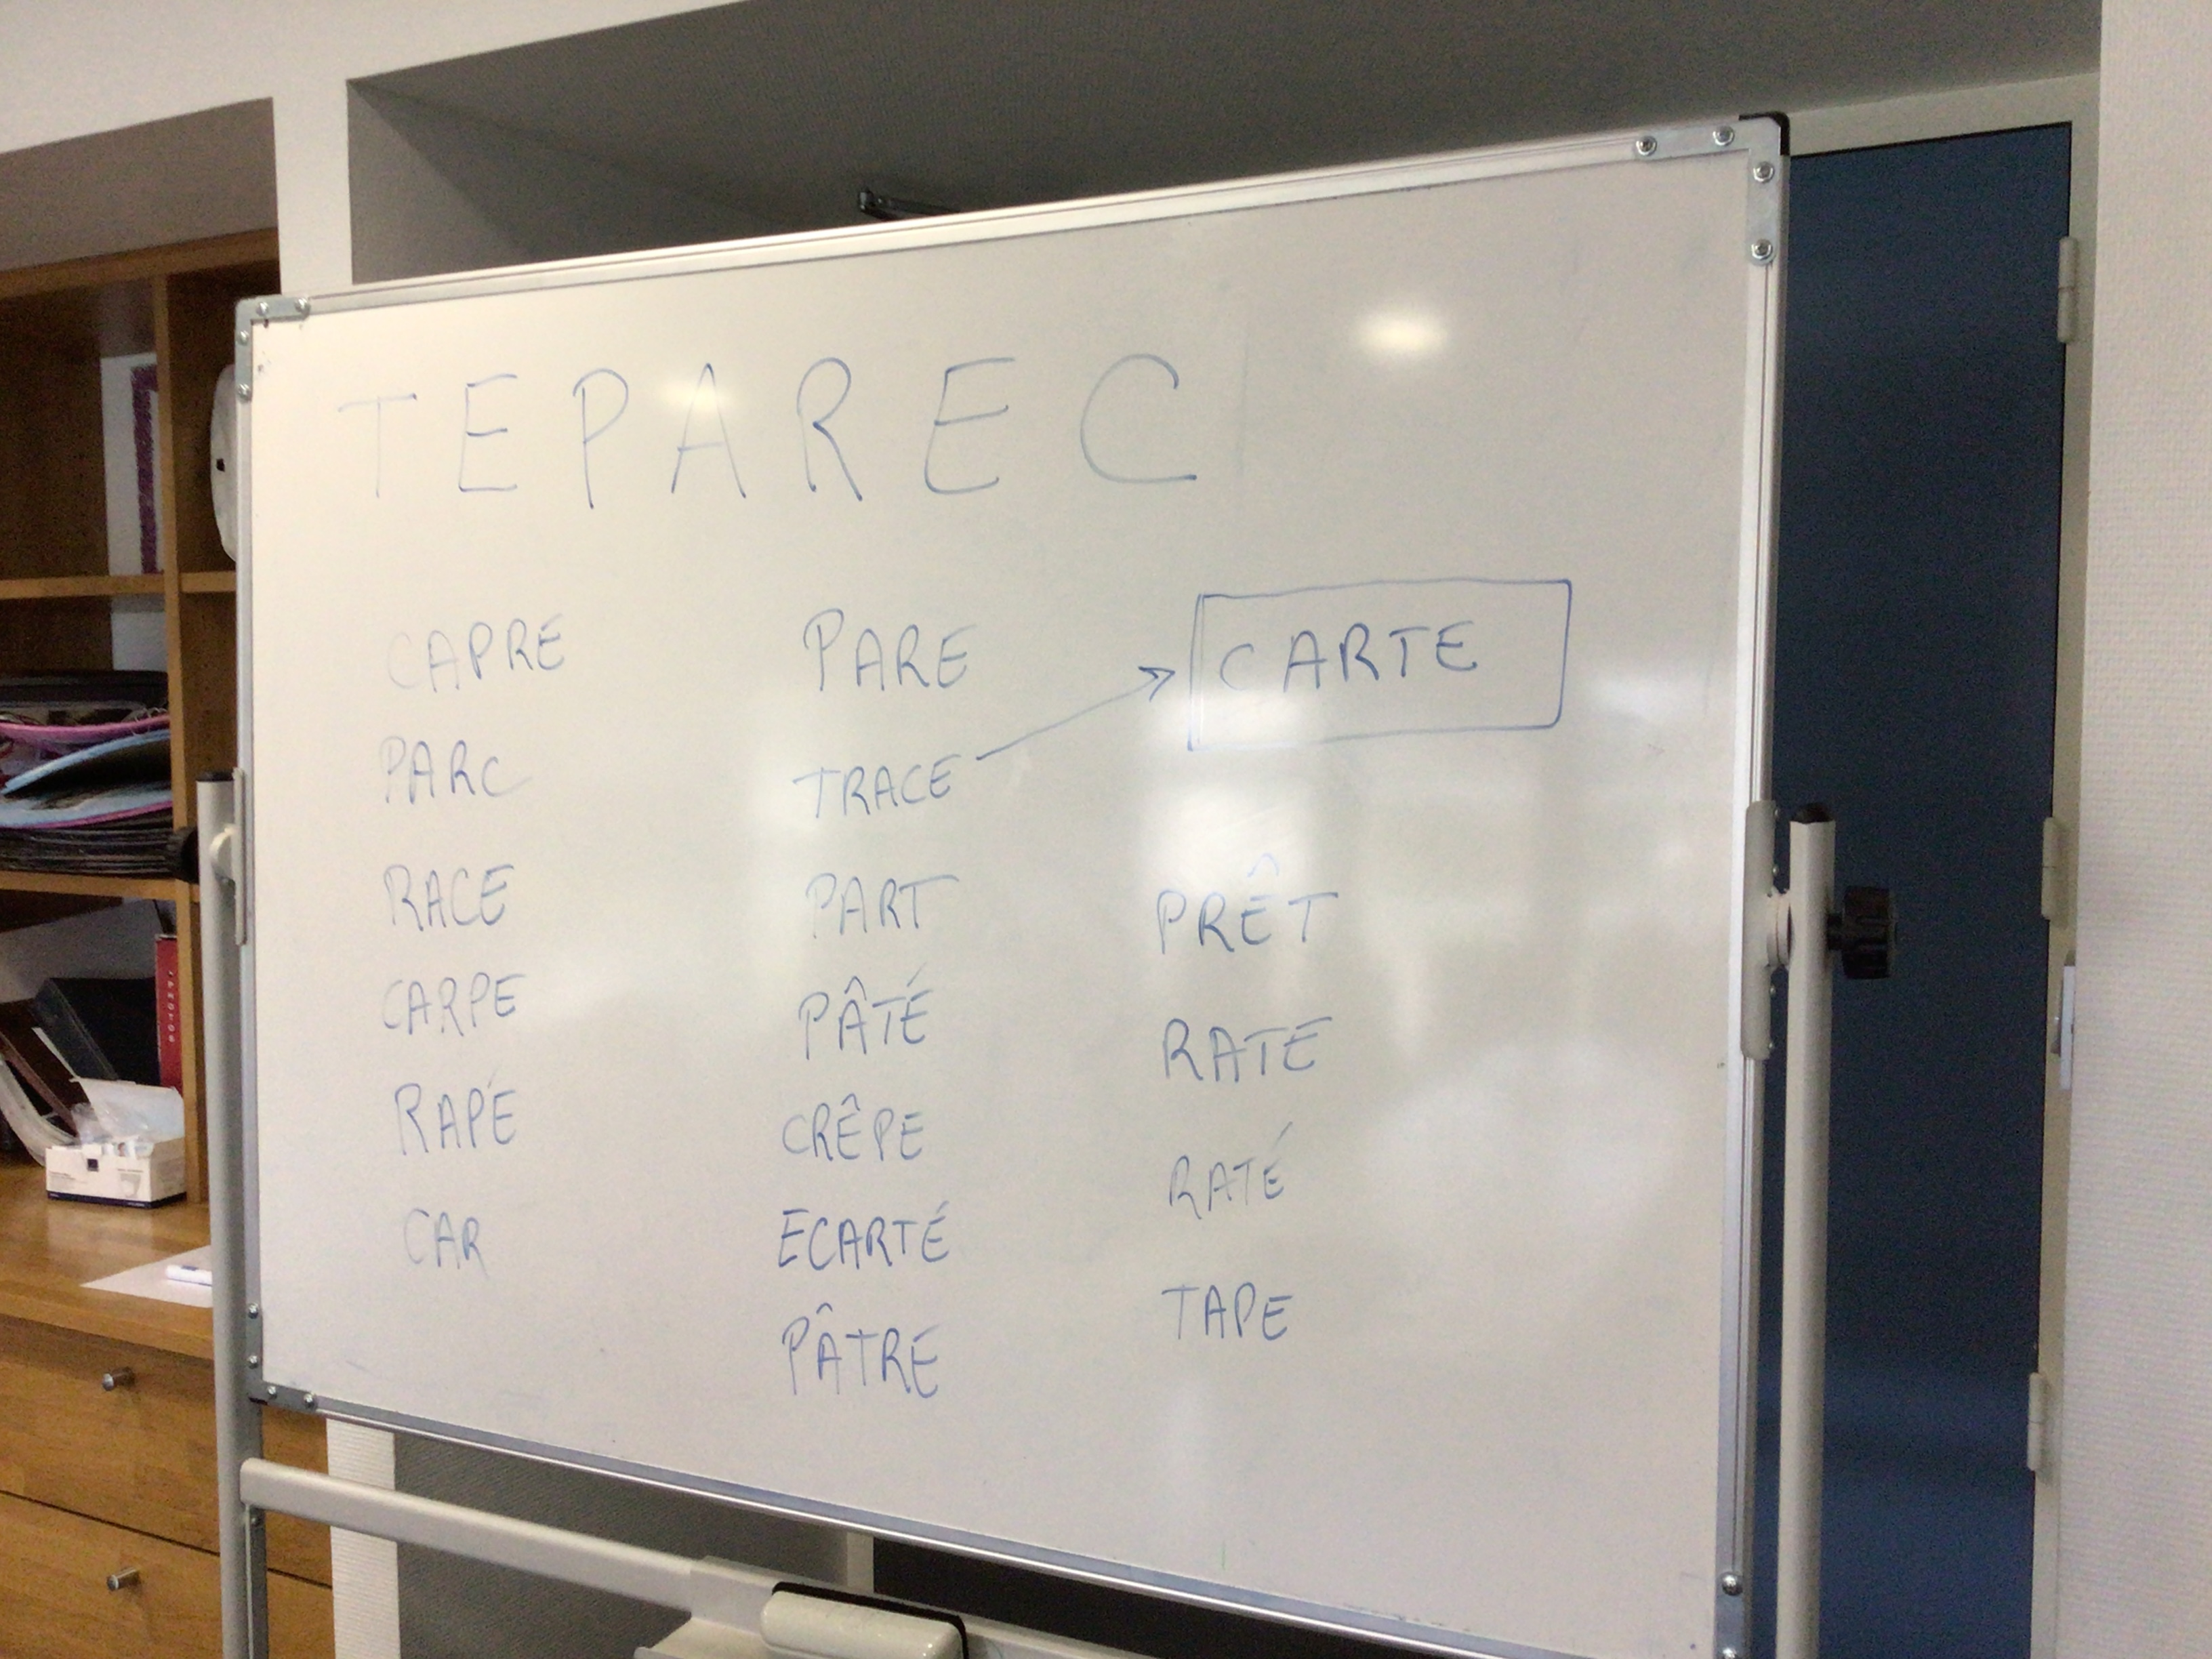 TEPAREC
CAPRE
PARC
RACE
CARPE
RAPÉ
CAR
PARE
TRACE
PART
PÂTÉ
CRÊPE
ECARTÉ
PÂTRE
CARTE
PRÊT
RATE
RATÉ
TAPE